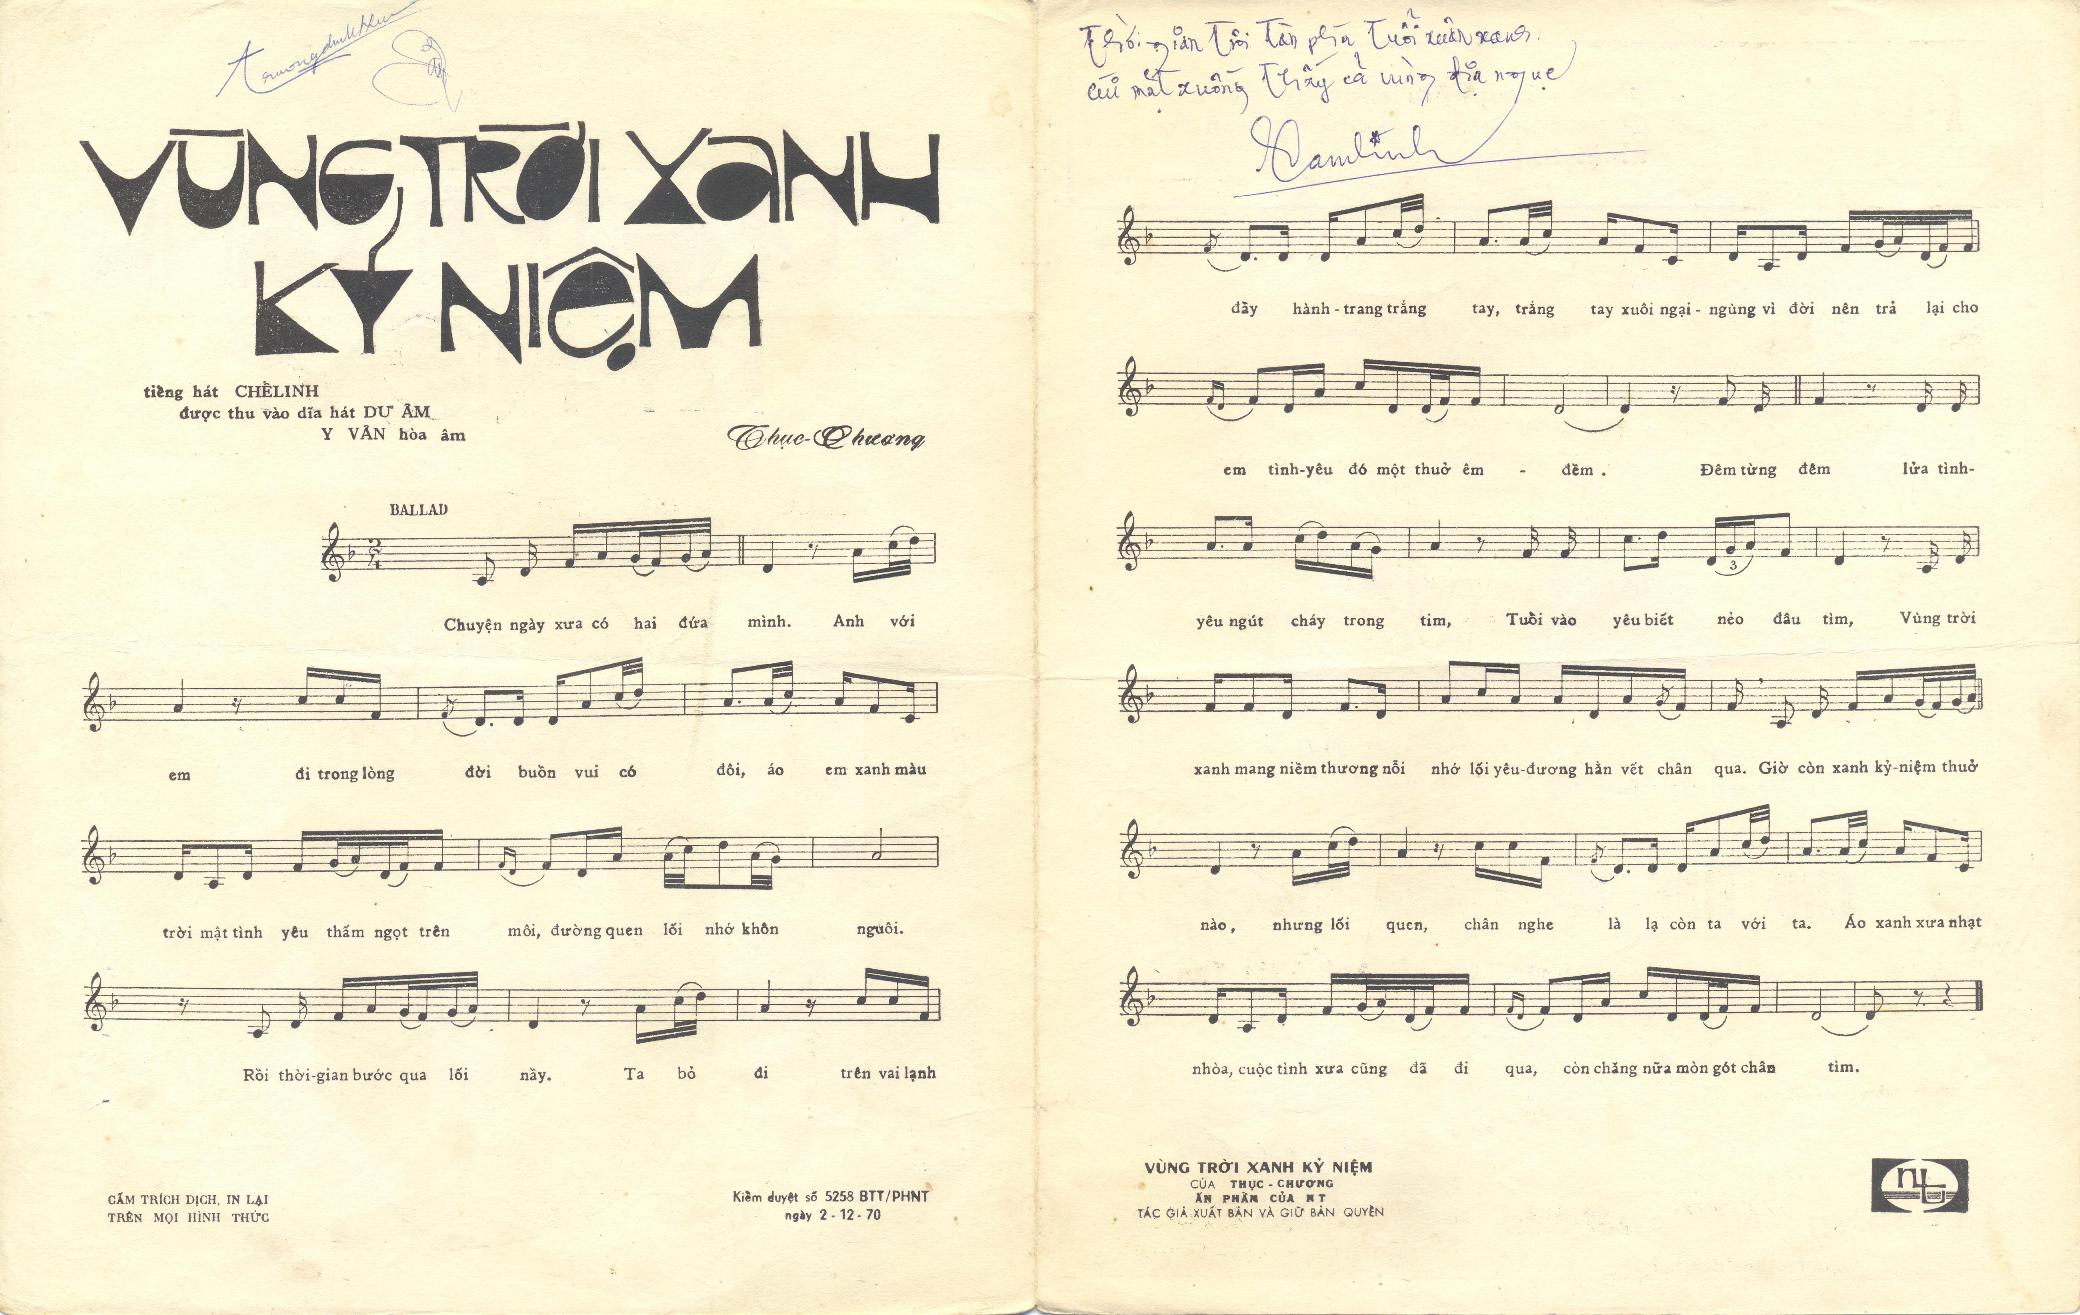 Trươngđìnhxuân
VÙNG TRỜI XANH
KỶ NIỆM
tiếng hát CHẾLINH
được thu vào dĩa hát DƯ ÂM
Y VÂN hòa âm
Thục-Chương
BALLAD
Chuyện ngày xưa có hai đứa mình. Anh với
em đi trong lòng đời buồn vui có đôi, áo em xanh màu
trời mật tình yêu thấm ngọt trên môi, đường quen lối nhớ khôn nguôi.
Rồi thời-gian bước qua lối nầy. Ta bỏ đi trên vai lạnh
CẤM TRÍCH DỊCH, IN LẠI
TRÊN MỌI HÌNH THỨC
Kiểm duyệt số 5258 BTT/PHNT
ngày 2-12-70
Thời gian trôi tàn phá tuổi xuân xanh.
cúi mặt xuống thấy cả vùng địa ngục
đầy hành-trang trắng tay, trắng tay xuôi ngại-ngùng vì đời nên trả lại cho
em tình-yêu đó một thuở êm - đềm.   Đêm từng đêm lửa tình-
yêu ngút cháy trong tim, Tuổi vào yêu biết nẻo đâu tìm, Vùng trời
xanh mang niềm thương nỗi nhớ lối yêu-đương hằn vết chân qua. Giờ còn xanh kỷ-niệm thuở
nào, nhưng lối quen, chân nghe là lạ còn ta với ta. Áo xanh xưa nhạt
3
nhòa, cuộc tình xưa cũng đã đi qua, còn chăng nữa mòn gót chân tìm.
VÙNG TRỜI XANH KỶ NIỆM
CỦA THỤC-CHƯƠNG
ẤN PHẨM CỦA NT
TÁC GIẢ XUẤT BẢN VÀ GIỮ BẢN QUYỀN
nt